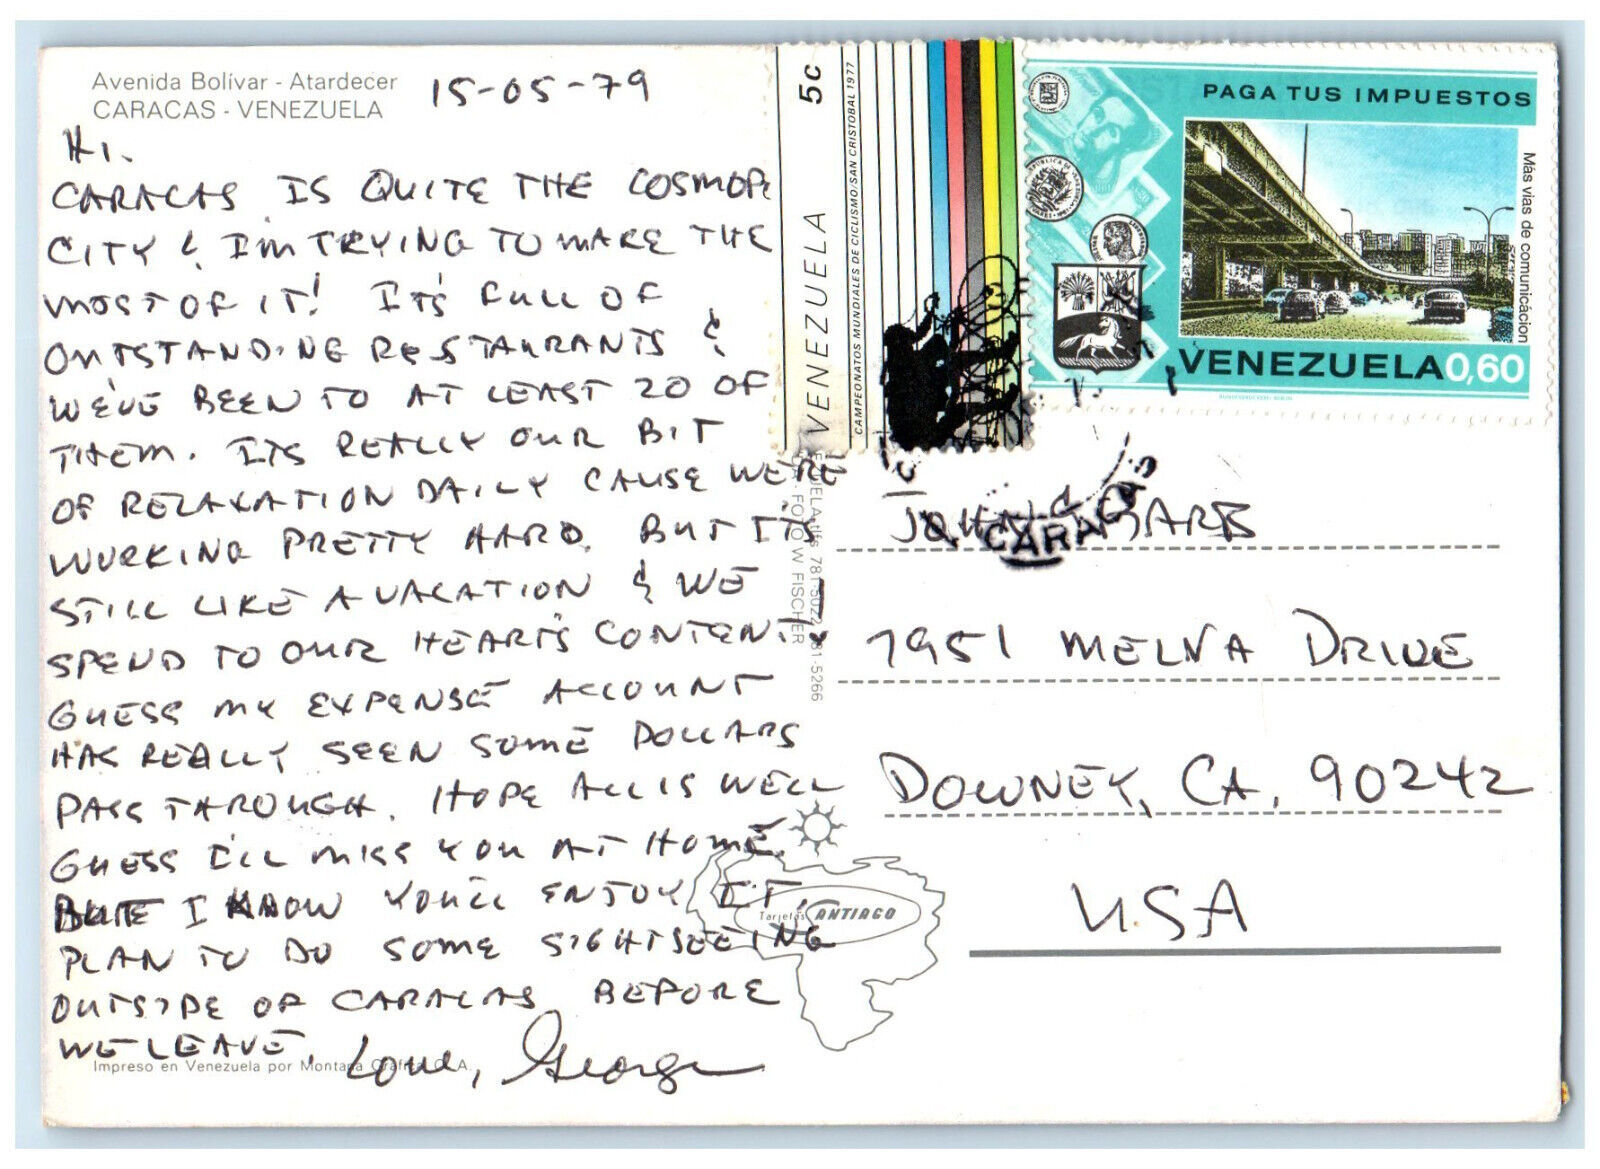 Avenida Bolívar - Atardecer
CARACAS - VENEZUELA
15-05-79
HI.
CARACAS IS QUITE THE
CITY & I'M TRYING TO MAKE THE
MOST OF IT! IT'S FULL OF
OUTSTANDING RESTAURANTS &
WE'VE BEEN TO AT LEAST 20 OF
THEM. ITS REALLY OUR BIT
OF RELAXATION DAILY CAUSE WE'RE
WORKING PRETTY HARD. BUT IT'S
STILL LIKE A VACATION & WE
SPEND TO OUR HEART'S CONTENT
GUESS MY EXPENSE ACCOUNT
HAS REALLY SEEN SOME DOLLARS
PASS THROUGH. HOPE ALL IS WELL
GUESS I'LL MISS YOU AT HOME.
BUT I KNOW YOU'LL ENJOY IT,
PLAN TO DO SOME SIGHTSEEING
OUTSIDE OF CARACAS BEFORE
WE LEAVE. Love, George
Impreso en Venezuela por Montana Gráfica C.A.
VENEZUELA 5c
CAMPEONATOS MUNDIALES DE CICLISMO/SAN CRISTOBAL 1977
PAGA TUS IMPUESTOS
Más vías de comunicácion
VENEZUELA 0,60
CARACAS
781-5022 781-5266
FOTO W FISCHER
JOHN
7951 MELVA DRIVE
DOWNEY, CA. 90242
USA
Tarjetas SANTIAGO